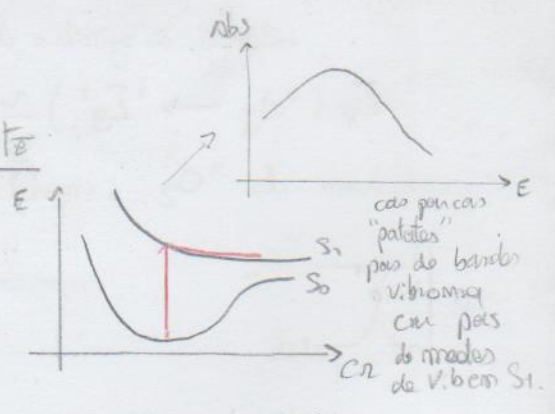 Abs
E
E
S₁
S₀
CR
cas pour cas
"patates"
pas de bandes
vibroniq
car pas
de modes
de vib en S1.